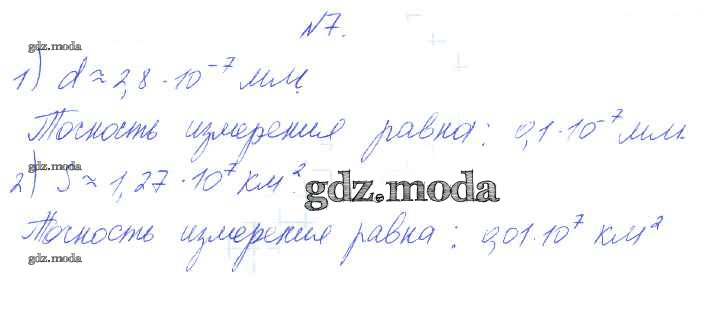 №7.
gdz.moda
1) d ≈ 2,8 · 10⁻⁷ мм.
Точность измерения равна: 0,1 · 10⁻⁷ мм.
gdz.moda
2) S ≈ 1,27 · 10⁷ км².
gdz.moda
Точность измерения равна: 0,01 · 10⁷ км²
gdz.moda